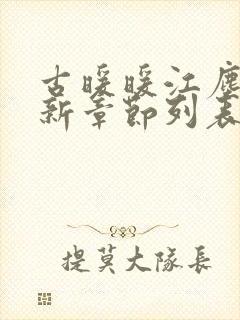 古暖暖江塵
新章節列表
提莫大隊長